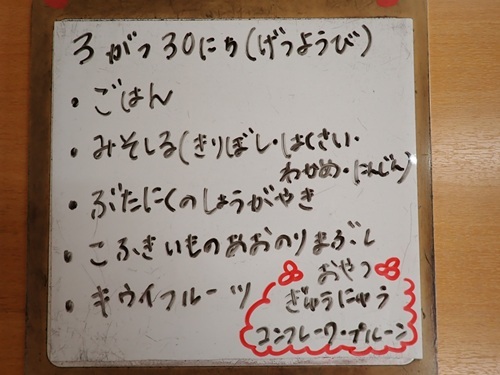 3がつ30にち(げつようび)
・ごはん
・みそしる(きりぼし・はくさい・
わかめ・にんじん)
・ぶたにくのしょうがやき
・こふきいものあおのりまぶし
・キウイフルーツ
おやつ
ぎゅうにゅう
コンフレーク・プルーン